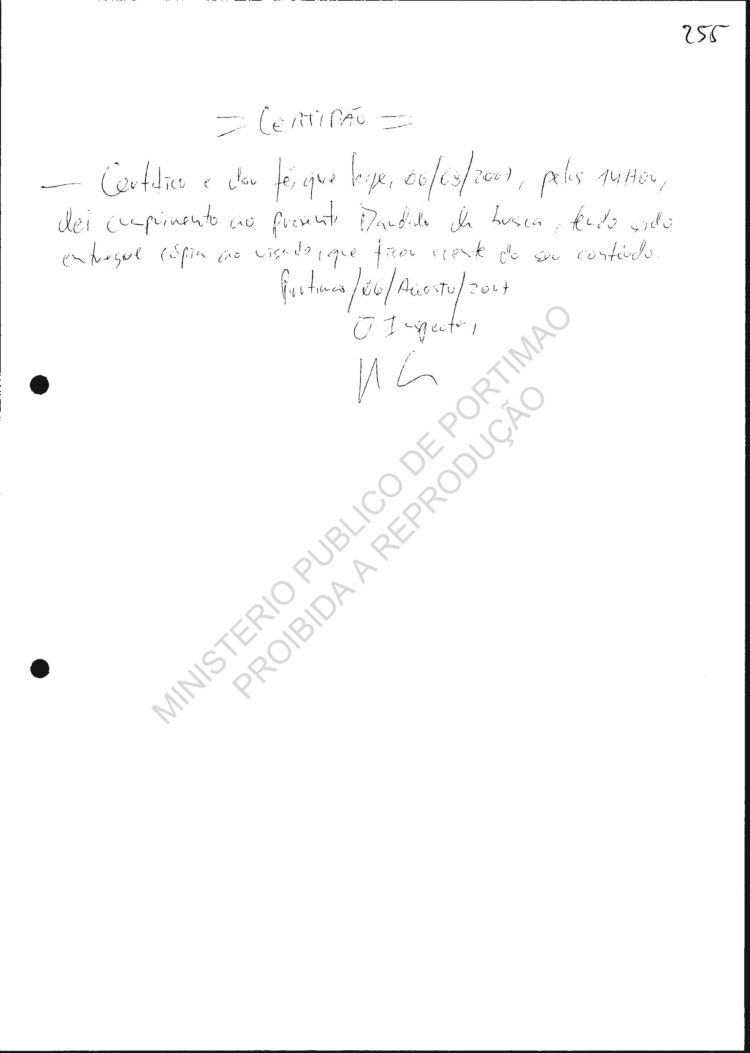 255
= CERTIDÃO =
— Certifico e dou fé, que hoje, 06/08/2007, pelas 14H00,
dei cumprimento ao presente Mandado de busca, tendo sido
entregue cópia ao visado, que ficou ciente do seu conteúdo.
Portimão/06/Agosto/2007
O Inspector,
MINISTERIO PUBLICO DE PORTIMAO
PROIBIDA A REPRODUÇÃO